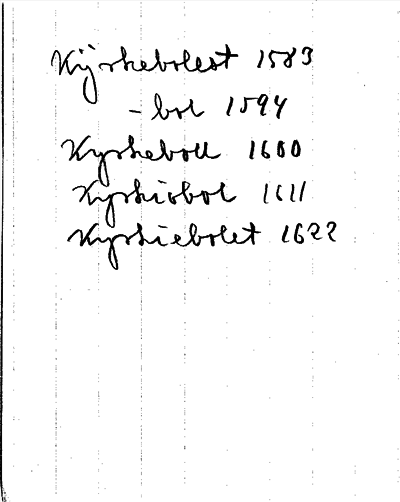 Kyrkebolest 1583
- bol 1594
Kyrkeboll 1600
Kyrkiobol 1611
Kyrkiebolet 1622